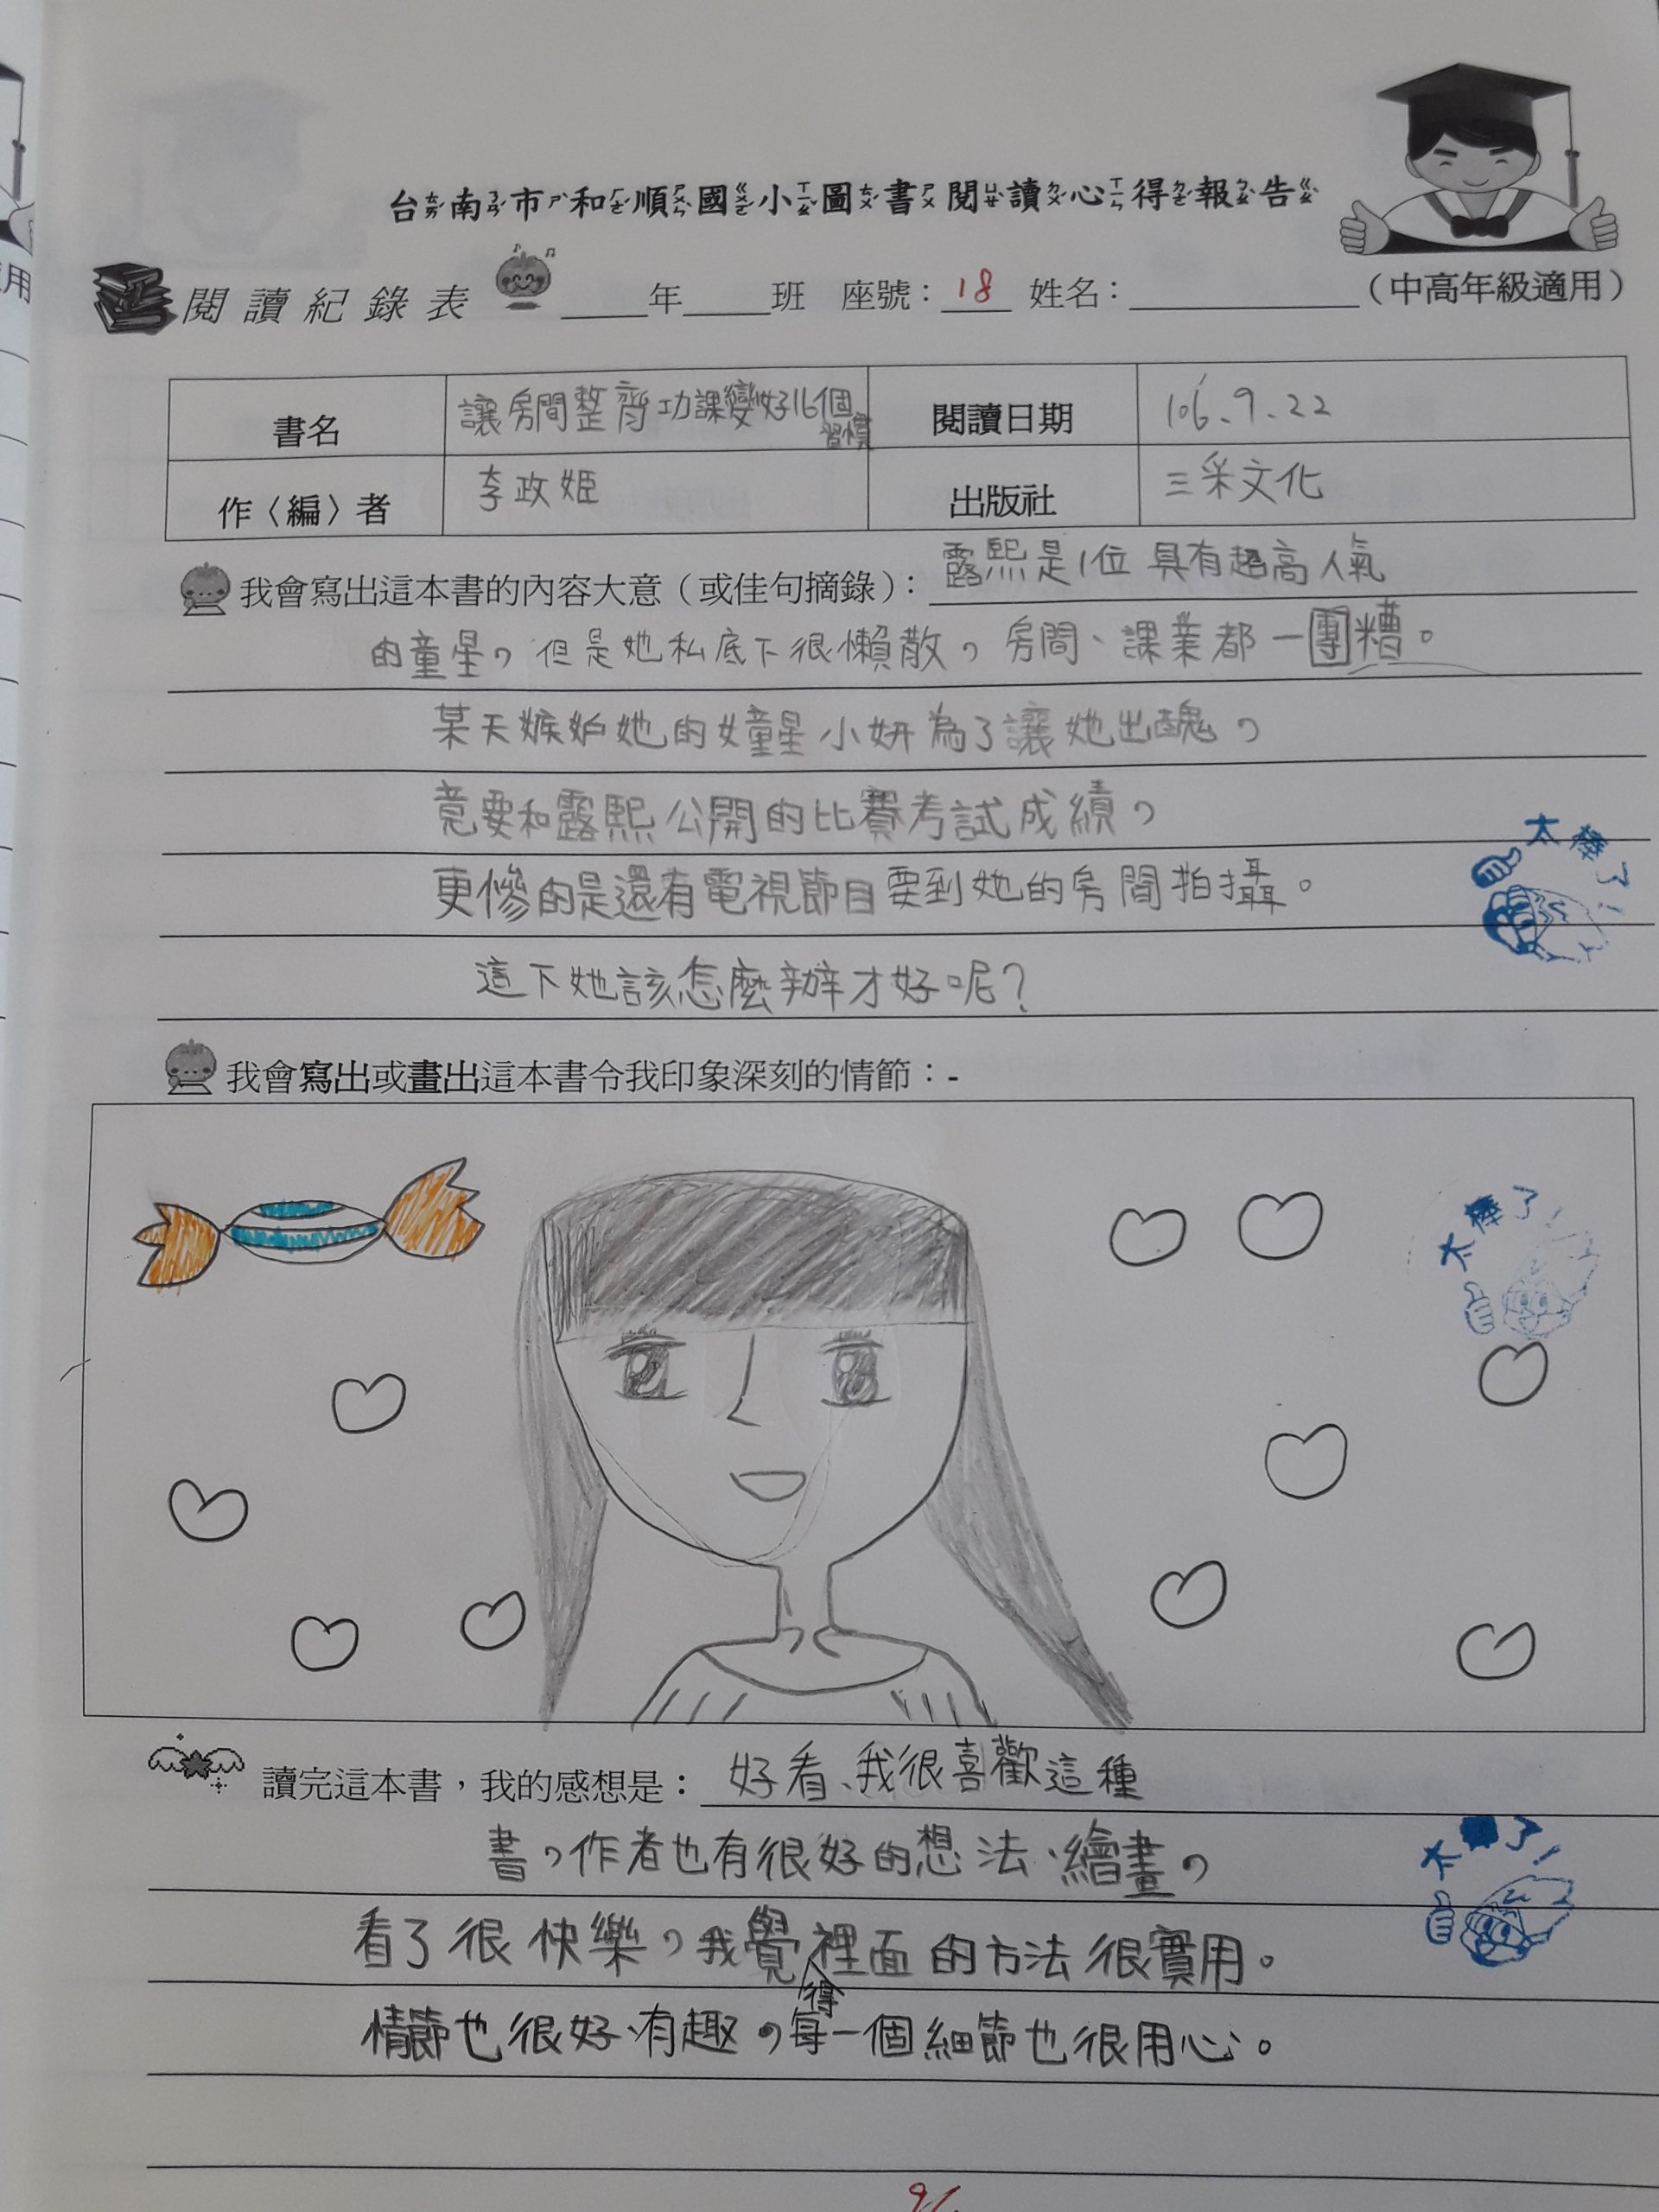 台南市和順國小圖書閱讀心得報告
閱讀紀錄表 ____年____班 座號：18 姓名：________（中高年級適用）
書名 讓房間整齊功課變好16個習慣 閱讀日期 106、9、22
作〈編〉者 李政姬 出版社 三采文化
我會寫出這本書的內容大意（或佳句摘錄）：露熙是1位具有超高人氣
的童星，但是她私底下很懶散，房間、課業都一團糟。
某天嫉妒她的女童星小妍為了讓她出醜，
竟要和露熙公開的比賽考試成績，
更慘的是還有電視節目要到她的房間拍攝。
這下她該怎麼辦才好呢？
太棒了！
我會寫出或畫出這本書令我印象深刻的情節：-
太棒了！
讀完這本書，我的感想是：好看、我很喜歡這種
書，作者也有很好的想法、繪畫，
看了很快樂，我覺得裡面的方法很實用。
情節也很好、有趣，每一個細節也很用心。
太棒了！